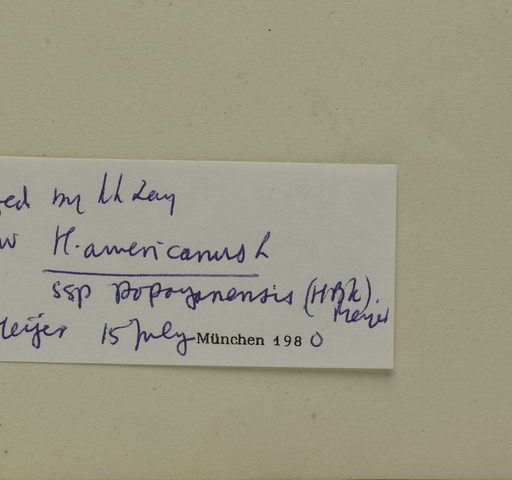 ed by
H. americanus L
ssp popayanensis (HBK).
Meijer
Meijer 15 July München 1980